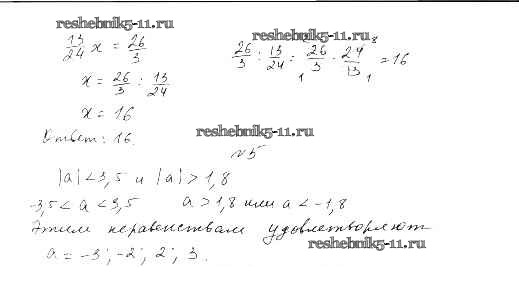 reshebnik5-11.ru
13/24 x = 26/3
reshebnik5-11.ru
26/3 : 13/24 = 26/3 · 24/13 = 16
x = 26/3 : 13/24
x = 16
Ответ: 16.
reshebnik5-11.ru
№5
|a| < 3,5 и |a| > 1,8
-3,5 < a < 3,5 a > 1,8 или a < -1,8
Этим неравенствам удовлетворяют
reshebnik5-11.ru
a = -3; -2; 2; 3.